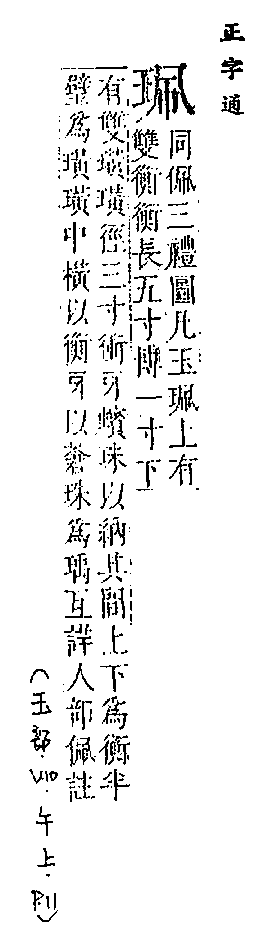 正字通
珮 同佩三禮圖凡玉珮上有
雙衡衡長五寸博一寸下
有雙璜璜徑三寸衝牙蠙珠以納其間上下為衡半
璧為璜璜中橫以衡牙以蒼珠為瑀互詳人部佩註
(玉部.V10.午上.P11)